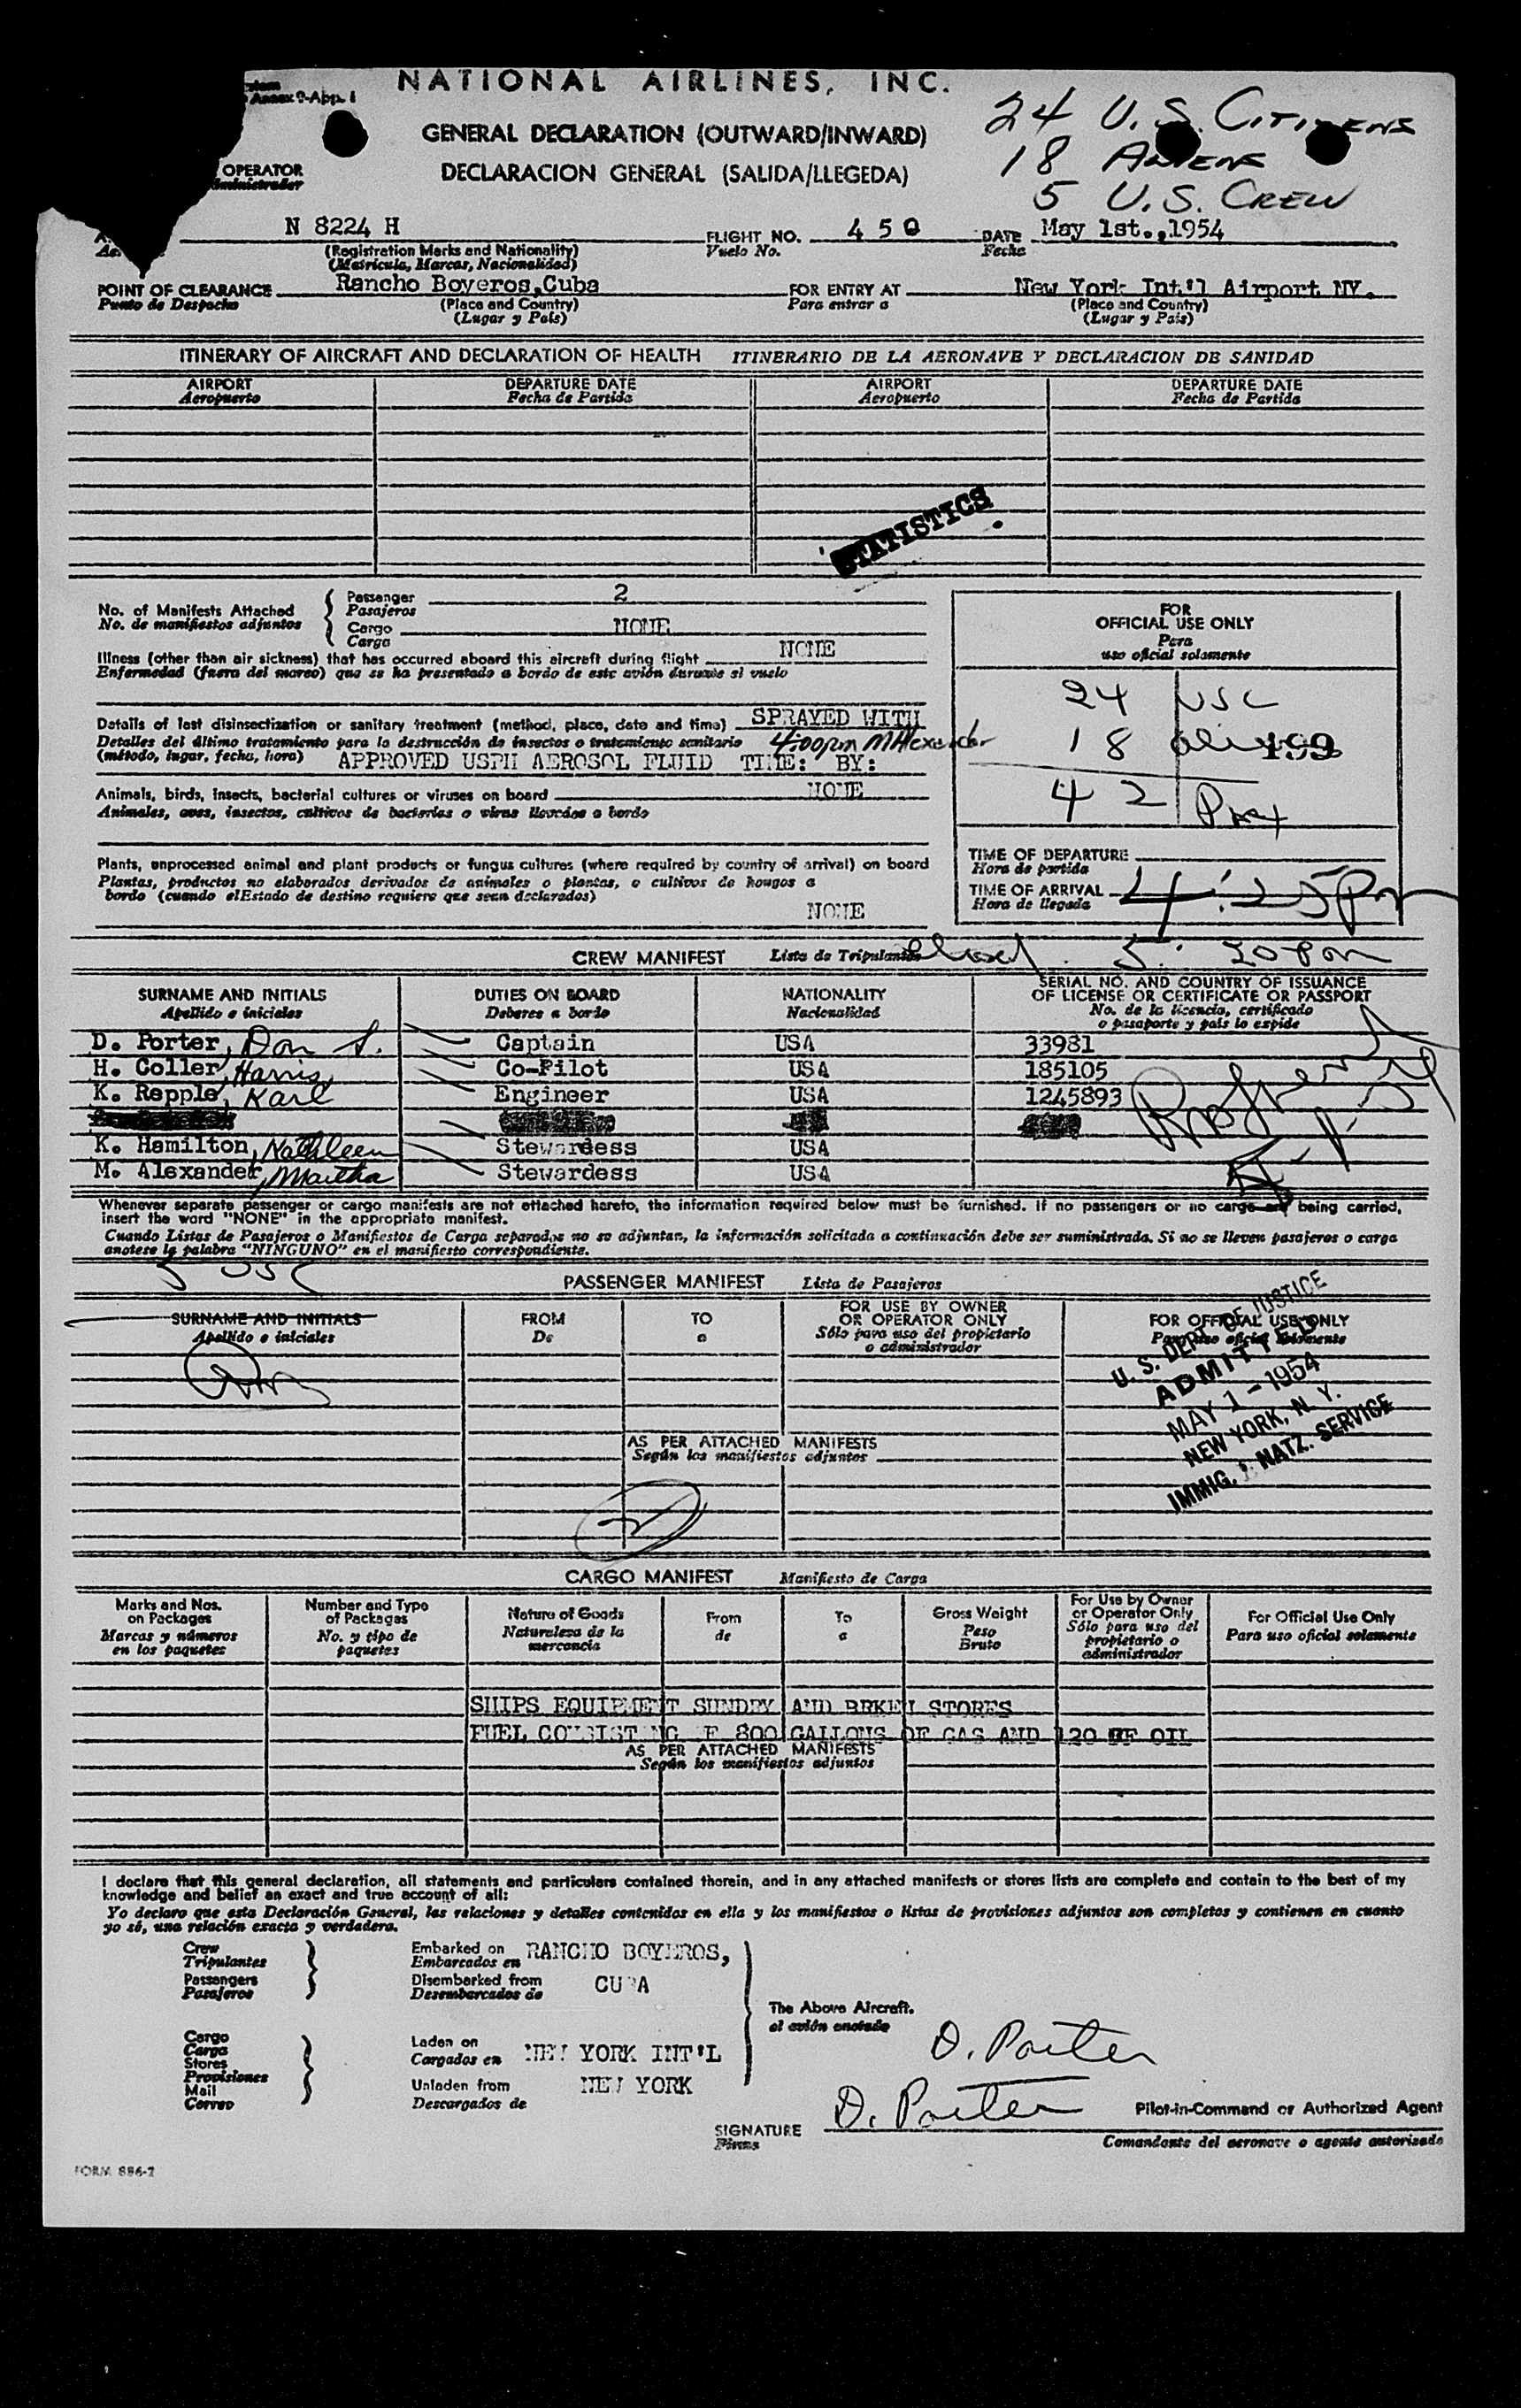 Annex 9-App. 1
NATIONAL AIRLINES, INC.
GENERAL DECLARATION (OUTWARD/INWARD)
DECLARACION GENERAL (SALIDA/LLEGEDA)
24 U.S. CITIZENS
18 ALIENS
5 U.S. CREW
OPERATOR
N 8224 H FLIGHT NO. 450 DATE May 1st.,1954
(Registration Marks and Nationality) Vuelo No. Fecha
(Matricula, Marcas, Nacionalidad)
POINT OF CLEARANCE Rancho Boyeros,Cuba FOR ENTRY AT New York Int'l Airport NY.
Punto de Despacho (Place and Country) Para entrar a (Place and Country)
(Lugar y Pais) (Lugar y Pais)
ITINERARY OF AIRCRAFT AND DECLARATION OF HEALTH ITINERARIO DE LA AERONAVE Y DECLARACION DE SANIDAD
AIRPORT DEPARTURE DATE AIRPORT DEPARTURE DATE
Aeropuerto Fecha de Partida Aeropuerto Fecha de Partida
STATISTICS
No. of Manifests Attached Passenger 2
No. de manifiestos adjuntos Pasajeros
Cargo NONE
Carga
Illness (other than air sickness) that has occurred aboard this aircraft during flight NONE
Enfermedad (fuera del mareo) que se ha presentado a bordo de este avión durante el vuelo
Details of last disinsectization or sanitary treatment (method, place, date and time) SPRAYED WITH
Detalles del último tratamiento para la destrucción de insectos o tratamiento sanitario 4:00pm M Alexander
(método, lugar, fecha, hora) APPROVED USPH AEROSOL FLUID TIME: BY:
Animals, birds, insects, bacterial cultures or viruses on board NONE
Animales, aves, insectos, cultivos de bacterias o virus llevados a bordo
Plants, unprocessed animal and plant products or fungus cultures (where required by country of arrival) on board
Plantas, productos no elaborados derivados de animales o plantas, o cultivos de hongos a
bordo (cuando elEstado de destino requiere que sean declarados)
NONE
FOR
OFFICIAL USE ONLY
Para
uso oficial solamente
24 USC
18 aliens 199
42 Pax
TIME OF DEPARTURE
Hora de partida
TIME OF ARRIVAL 4:25 Pm
Hora de llegada
CREW MANIFEST Lista de Tripulantes 5:20 pm
SURNAME AND INITIALS DUTIES ON BOARD NATIONALITY SERIAL NO. AND COUNTRY OF ISSUANCE
Apellido e iniciales Deberes a bordo Nacionalidad OF LICENSE OR CERTIFICATE OR PASSPORT
No. de la licencia, certificado
o pasaporte y pais lo expide
D. Porter, Don S. Captain USA 33981
H. Coller, Harris Co-Pilot USA 185105
K. Repple, Karl Engineer USA 1245893
K. Hamilton, Kathleen Stewardess USA
M. Alexander, Martha Stewardess USA
Whenever separate passenger or cargo manifests are not attached hereto, the information required below must be furnished. If no passengers or no cargo are being carried,
insert the word "NONE" in the appropriate manifest.
Cuando Listas de Pasajeros o Manifiestos de Carga separados no se adjuntan, la información solicitada a continuación debe ser suministrada. Si no se lleven pasajeros o carga
anotese la palabra "NINGUNO" en el manifiesto correspondiente.
5 USC
PASSENGER MANIFEST Lista de Pasajeros
SURNAME AND INITIALS FROM TO FOR USE BY OWNER FOR OFFICIAL USE ONLY
Apellido e iniciales De a OR OPERATOR ONLY Para uso oficial solamente
Sólo para uso del propietario
o administrador
U. S. DEPT. OF JUSTICE
ADMITTED
MAY 1 - 1954
NEW YORK, N. Y.
IMMIG. & NATZ. SERVICE
AS PER ATTACHED MANIFESTS
Según los manifiestos adjuntos
CARGO MANIFEST Manifiesto de Carga
Marks and Nos. Number and Type Nature of Goods From To Gross Weight For Use by Owner For Official Use Only
on Packages of Packages Naturaleza de la de a Peso or Operator Only Para uso oficial solamente
Marcas y números No. y tipo de mercancia Bruto Sólo para uso del
en los paquetes paquetes propietario o
administrador
SHIPS EQUIPMENT SUNDRY AND BRKEN STORES
FUEL CONSISTING OF 800 GALLONS OF GAS AND 120 OF OIL
AS PER ATTACHED MANIFESTS
Según los manifiestos adjuntos
I declare that this general declaration, all statements and particulars contained therein, and in any attached manifests or stores lists are complete and contain to the best of my
knowledge and belief an exact and true account of all:
Yo declaro que esta Declaración General, las relaciones y detalles contenidos en ella y los manifiestos o listas de provisiones adjuntos son completos y contienen en cuanto
yo sé, una relación exacta y verdadera.
Crew Embarked on RANCHO BOYEROS,
Tripulantes Embarcados en
Passengers Disembarked from CUBA
Pasajeros Desembarcados de
The Above Aircraft.
el avión anotado
Cargo
Carga Laden on NEW YORK INT'L
Stores Cargados en
Provisiones
Mail Unladen from NEW YORK
Correo Descargados de
D. Porter
SIGNATURE D. Porter Pilot-in-Command or Authorized Agent
Firma Comandante del aeronave o agente autorizado
FORM 886-2